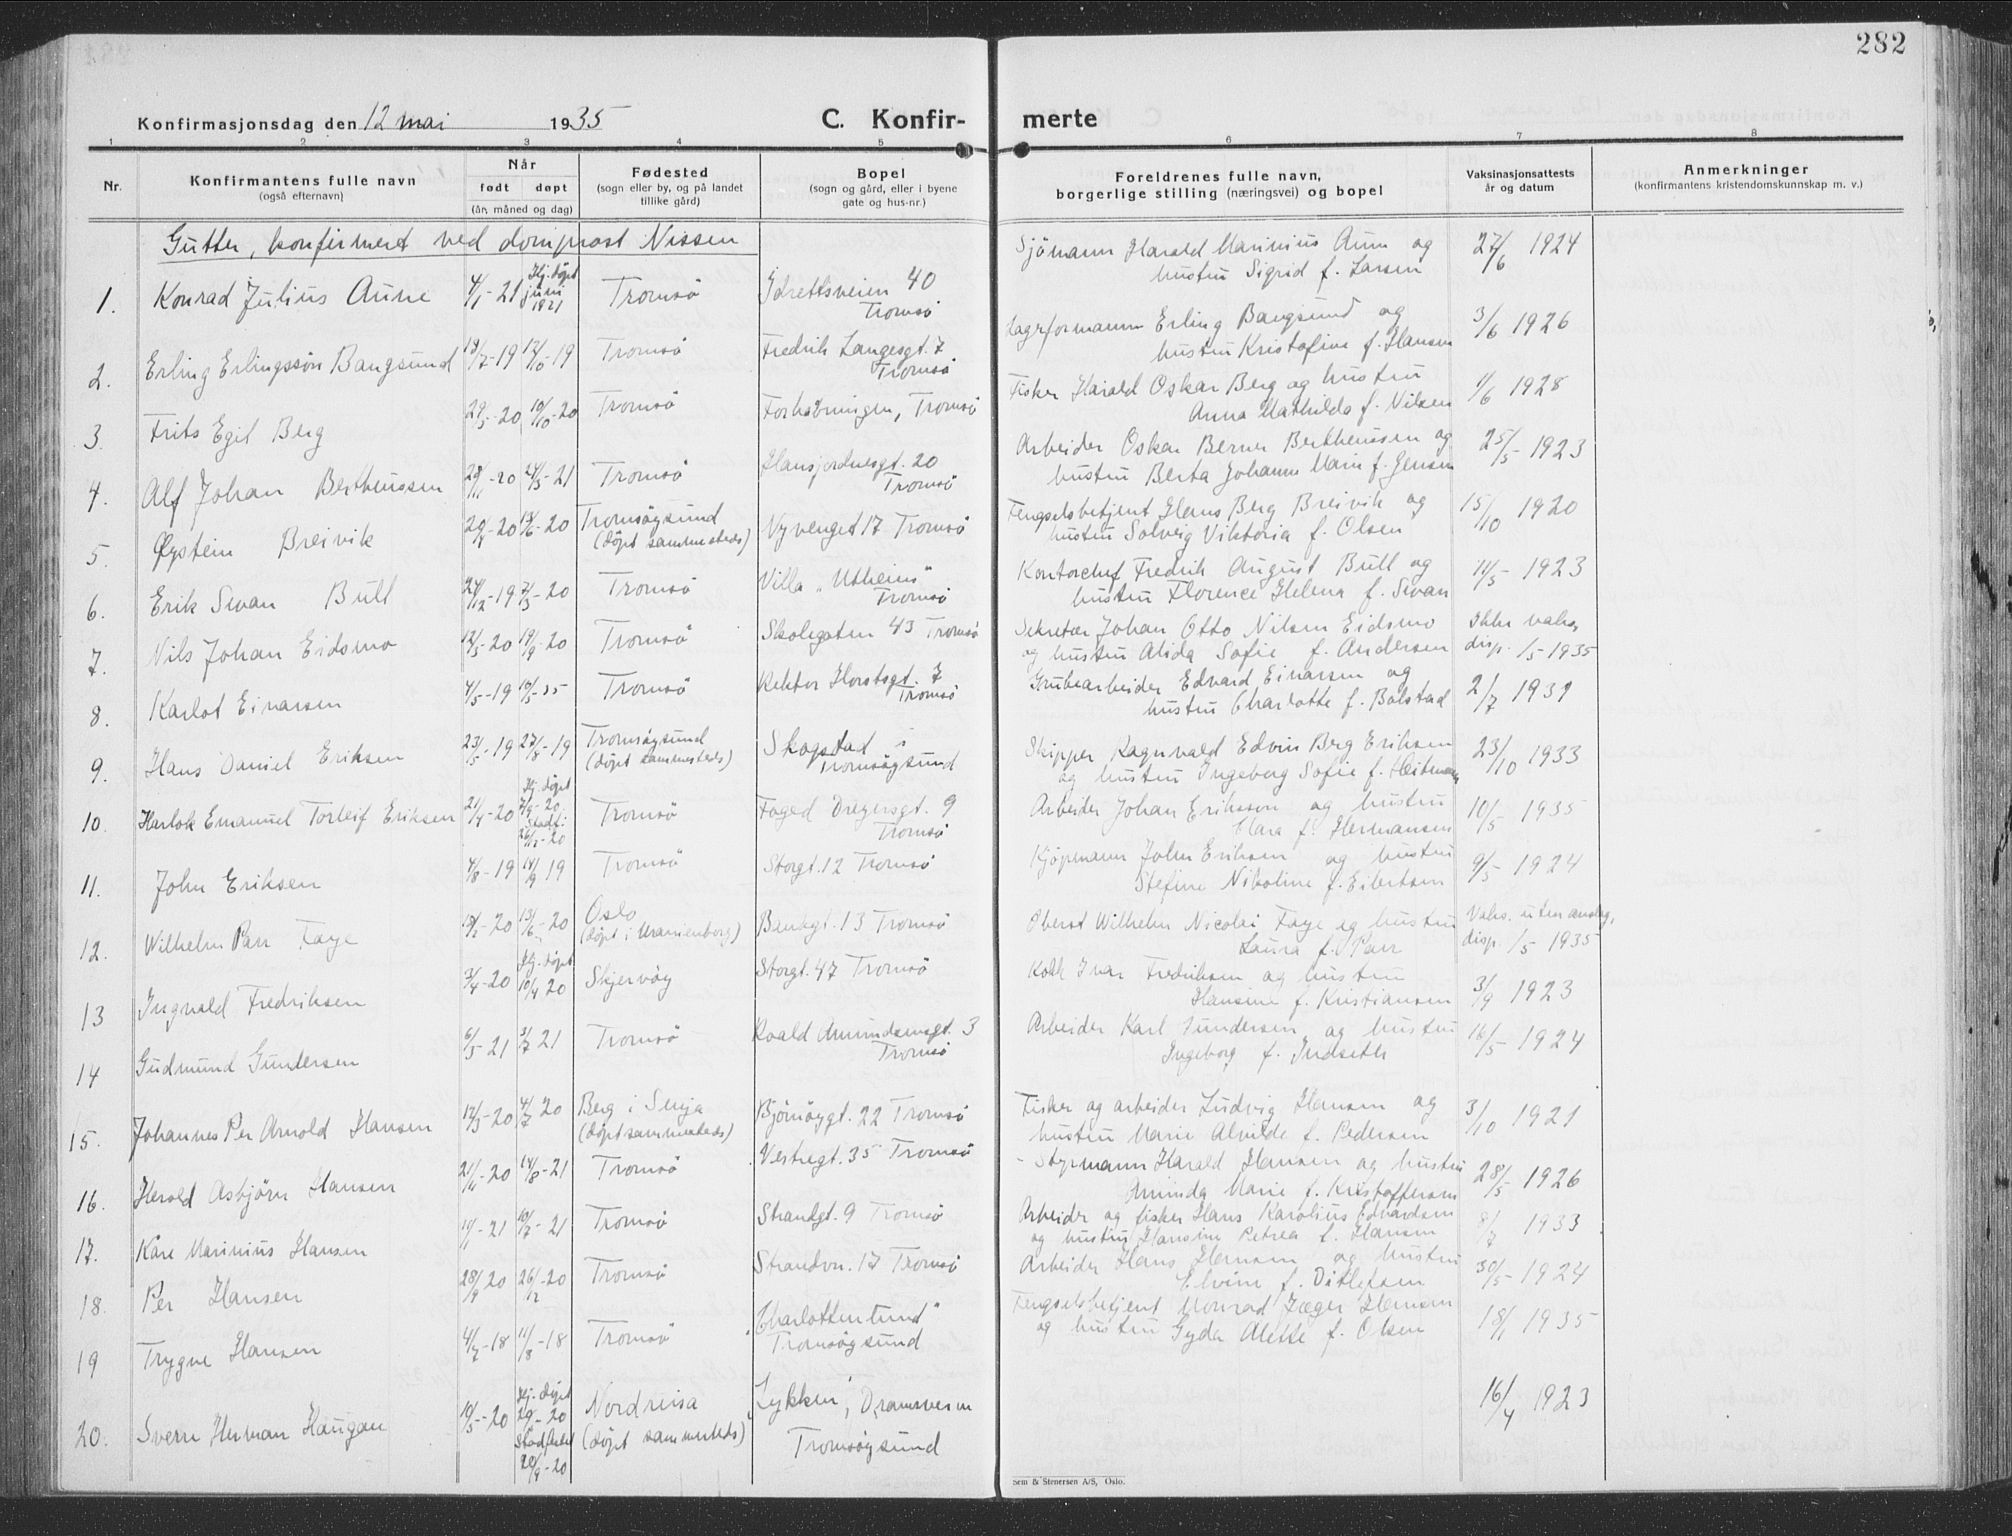 282
Konfirmasjonsdag den 12 mai 1935
C. Konfir- merte
1 2 3 4 5 6 7 8
Nr.
Konfirmantens fulle navn
(også efternavn)
Når
født døpt
(år, måned og dag)
Fødested
(sogn eller by, og på landet
tillike gård)
Bopel
(sogn og gård, eller i byene
gate og hus-nr.)
Foreldrenes fulle navn,
borgerlige stilling (næringsvei) og bopel
Vaksinasjonsattests
år og datum
Anmerkninger
(konfirmantens kristendomskunnskap m. v.)
Gutter, konfirmert ved domprost Nissen
1. Konrad Julius Aune 4/1-21 Hj. døpt juni 1921 Tromsö Idrettsveien 40 Tromsö
Sjömann Harald Marinius Aune og
hustru Sigrid f. Larsen 27/6 1924
2. Erling Erlingssön Bangsund 12/10-19 Tromsö Fredrik Langesgt. 7 Tromsö
Lagerformann Erling Bangsund og
hustru Kristofine f. Hansen 3/6 1926
3. Frits Egil Berg 10/10-20 Tromsö Forhåbningen, Tromsö
Fisker Harald Oskar Berg og hustru
Anna Mathilde f. Nilsen 1/6 1928
4. Alf Johan Bertheussen 28/11-20 24/5-21 Tromsö Hansjordnesgt. 20 Tromsö
Arbeider Oskar Berner Bertheussen og
hustru Berta Johanne Marie f. Jensen 25/5-1923
5. Øystein Breivik Tromsöysund (döpt sammesteds) Nyvenget 17 Tromsö
Fengselsbetjent Hans Berg Breivik og
hustru Solveig Viktoria f. Olsen 15/10 1920
6. Erik Swan Bull 24/12-19 7/3-20 Tromsö Villa „Utheim" Tromsö
Kontorchef Fredrik August Bull og
hustru Florence Helena f. Swan 11/5-1923
7. Nils Johan Eidsmo 12/5-20 19/9-20 Tromsö Skolegaten 43 Tromsö
Sekretær Johan Otto Nilsen Eidsmo
og hustru Alida Sofie f. Andersen Ikke vaks, disp. 1/5-1935
8. Karlot Einarsen 4/5-19 Tromsö Rektor Horstsgt. 7 Tromsö
Grubearbeider Edvard Einarsen og
hustru Charlotte f. Bolstad 2/7 1931
9. Hans Daniel Eriksen 23/5-19 27/8-19 Tromsöysund (döpt sammesteds) Skogstad i Tromsöysund
Skipper Ragnvald Edvin Berg Eriksen
og hustru Ingeborg Sofie f. Heitmann 23/10 1933
10. Harlok Emanuel Torleif Eriksen 21/4-20 Hj. döpt Tromsö Foged Dreyersgt. 9 Tromsö
Arbeider Johan Eriksson og hustru
Clara f. Hermansen 10/5 1935
11. John Eriksen 4/8-19 14/9 19 Tromsö Storgt. 12 Tromsö
Kjöpmann John Eriksen og hustru
Stefine Nikoline f. Eilertsen 9/5-1924
12. Wilhelm Parr Faye 13/6-20 Oslo (döpt i Uranienborg) Bankgt. 13 Tromsö
Oberst Wilhelm Nicolai Faye og hustru
Laura f. Parr Vaks. uten anslag, disp. 1/5 1935
13 Ingvald Fredriksen 3/4-20 Hj. döpt 10/4 20 Skjervöy Storgt. 47 Tromsö
Kokk Ivar Fredriksen og hustru
Hansine f. Kristiansen 3/9 1923
14 Gudmund Gundersen 6/5-21 3/7 21 Tromsö Roald Amundsensgt. 3 Tromsö
Arbeider Karl Gundersen og hustru
Ingeborg f. Indseth 16/5-1924
15. Johannes Per Arnold Hansen 4/7 20 Berg i Senja (döpt sammesteds) Bjömöygt. 22 Tromsö
Fisker og arbeider Ludvig Hansen og
hustru Marie Alvilde f. Pedersen 3/10 1921
16. Harold Asbjörn Hansen 21/11-20 14/8-21 Tromsö Vestregt. 35 Tromsö
Styrmann Harald Hansen og hustru
Aminda Marie f. Kristoffersen 28/5 1926
17. Kåre Marinius Hansen 11/1-21 10/7-21 Tromsö Strandgt. 9 Tromsö
Arbeider og fisker Hans Karolius Edvardsen
og hustru Hansine Petrea f. Hansen 8/7 1933
18. Per Hansen 28/9 20 26/12-20 Tromsö Strandvn. 17 Tromsö
Arbeider Hans Hansen og hustru
Elvine f. Ditlefsen 30/5-1924
19 Trygve Hansen 4/7-18 11/8-18 Tromsö „Charlottenlund" Tromsöysund
Fengselsbetjent Monrad Jæger Hansen
og hustru Gyda Alette f. Olsen 18/1 1935
20. Sverre Herman Haugan 10/5-20 Hj. döpt Stadfestet Nordreisa (döpt sammesteds) „Lykken", Dramsveien Tromsöysund
16/4 1923
Sem & Stenersen A/S, Oslo.